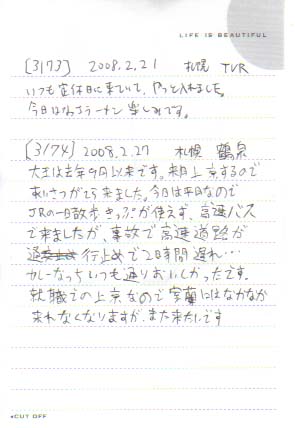 LIFE IS BEAUTIFUL
[3173] 2008.2.21 札幌 TVR
いつも定休日に来ていて、やっと入れました。
今日はカレーラーメン楽しみです。
[3174] 2008.2.27 札幌 鶴泉
大王は去年9月以来です。来月上京するので
あいさつがてら来ました。今日は平日なので
JRの一日散歩きっぷが使えず、高速バス
で来ましたが、事故で高速道路が
行止めで2時間遅れ…
カレーなっちいつも通りおいしかったです。
就職での上京なので室蘭にはなかなか
来れなくなりますが、また来たいです
CUT OFF